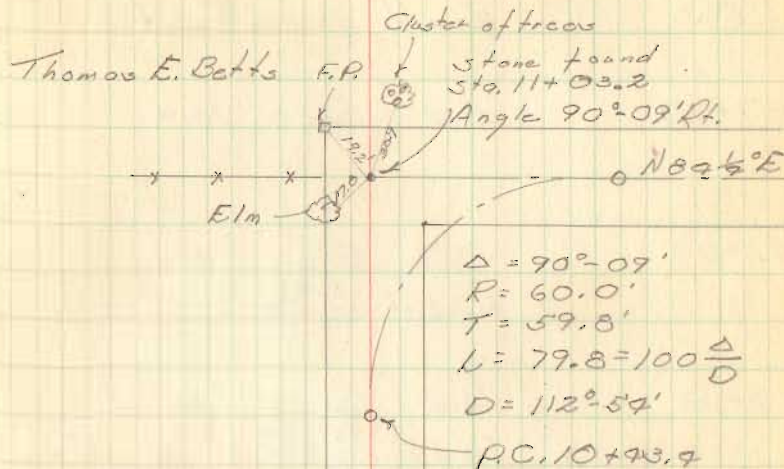 Cluster of trees
Thomas E. Betts
F.P.
stone found
sta. 11+03.2
Angle 90°-09' Rt.
19.2
N 89 1/4° E
Elm
Δ = 90°-09'
R = 60.0'
T = 59.8'
L = 79.8 = 100 Δ/D
D = 112°-54'
P.C. 10+43.4